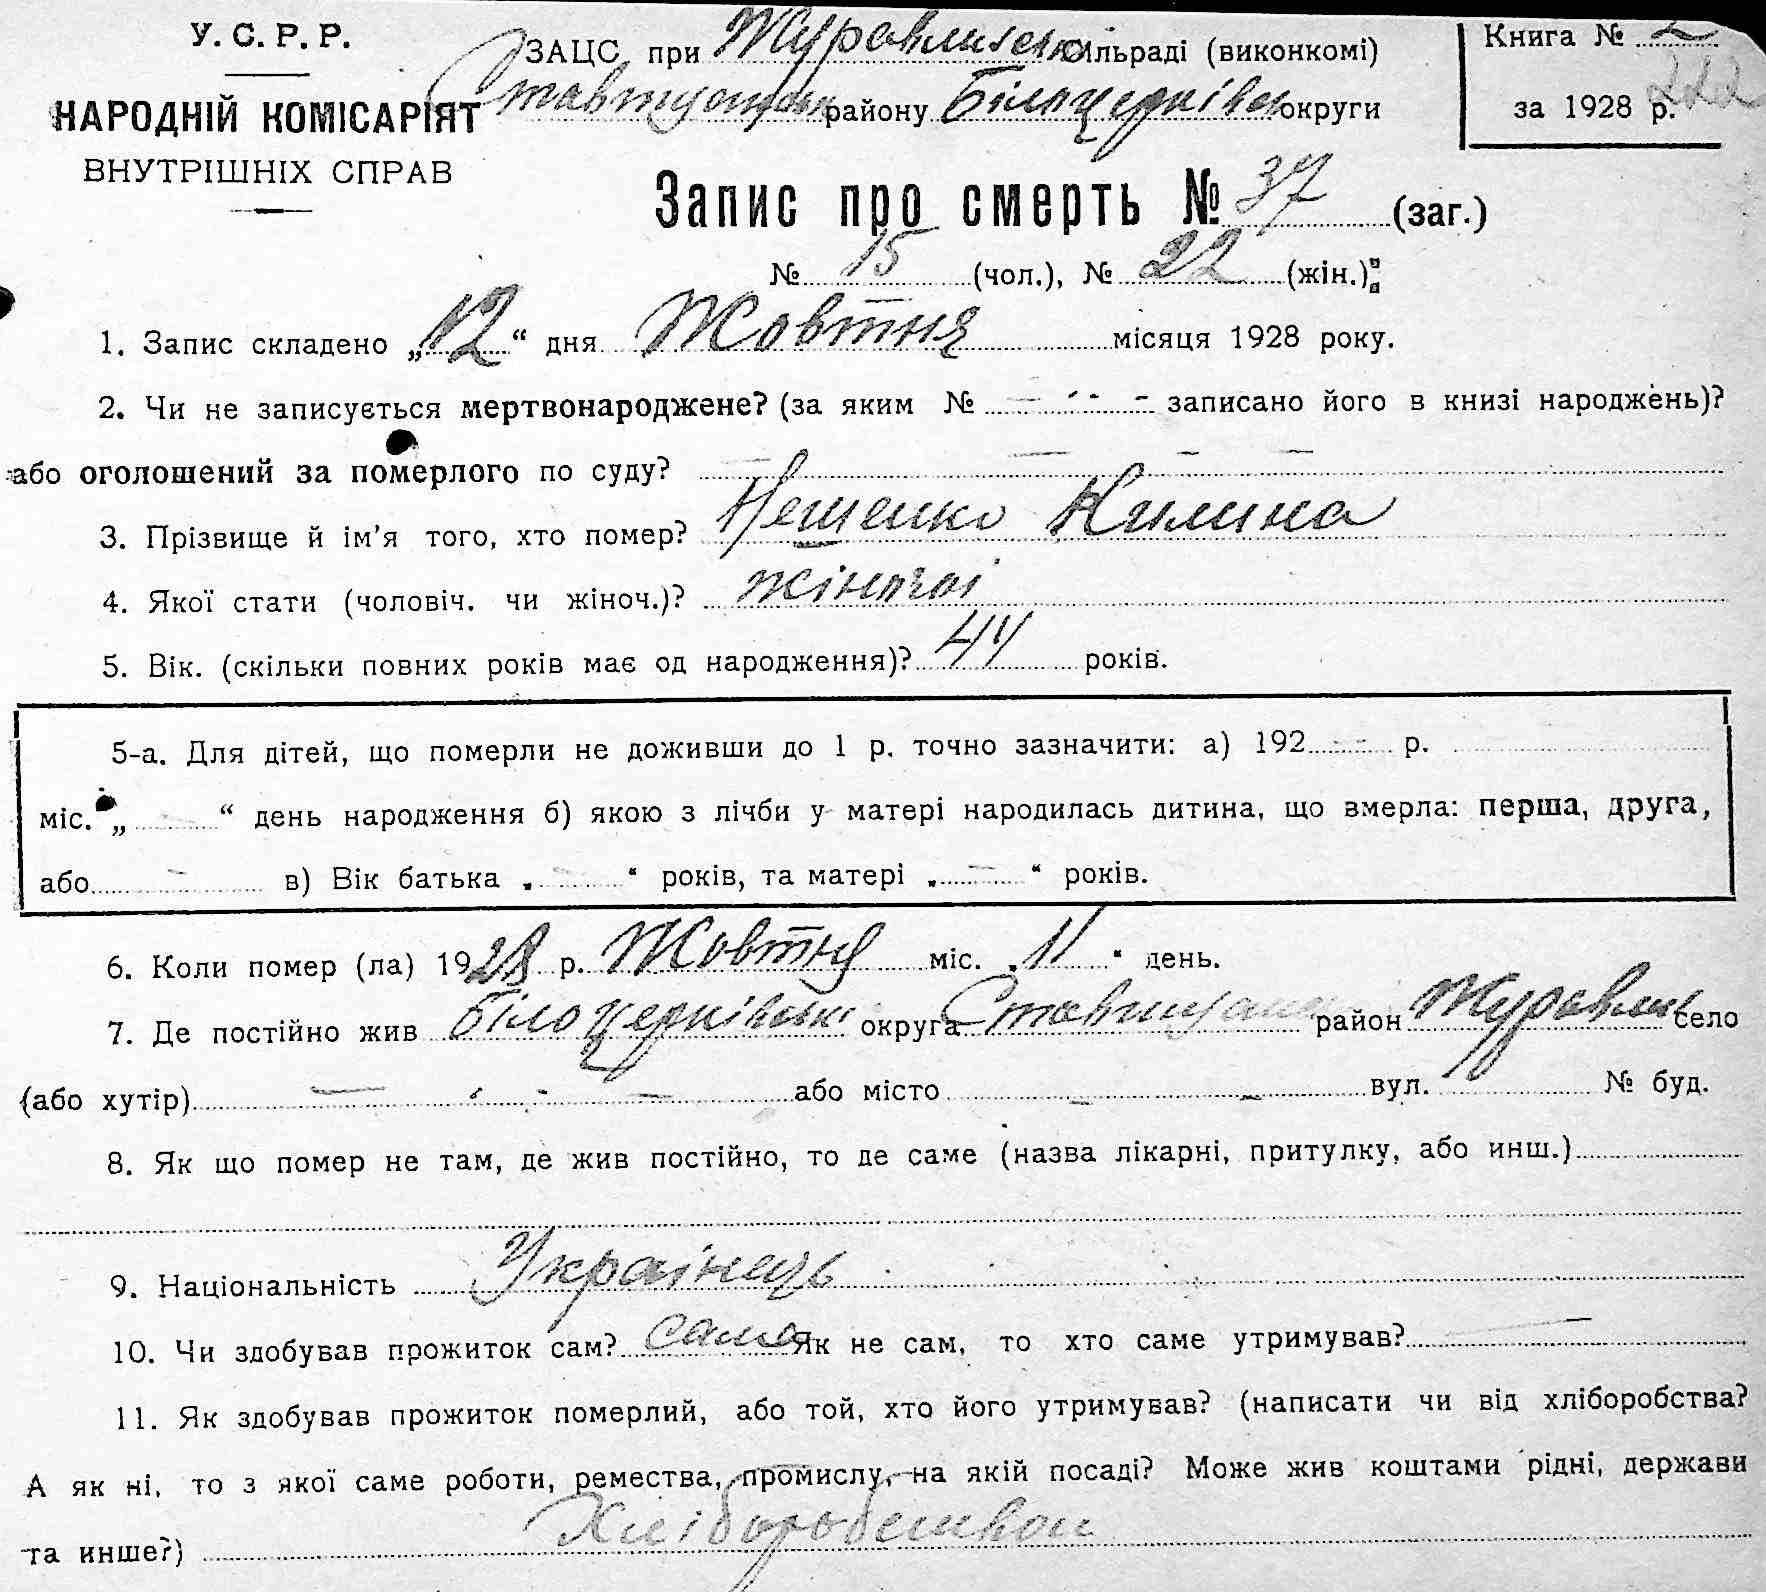 У.С.Р.Р.
НАРОДНІЙ КОМІСАРІЯТ
ВНУТРІШНІХ СПРАВ
ЗАЦС при Журавлиській сільраді (виконкомі)
району Білоцерківс округи
Книга № 2
222
за 1928 р.
Запис про смерть № 37 (заг.)
№ 15 (чол.), № 22 (жін.):
1. Запис складено „12“ дня Жовтня місяця 1928 року.
2. Чи не записується мертвонароджене? (за яким № - - - записано його в книзі народжень)?
або оголошений за померлого по суду? — — — —
3. Прізвище й ім'я того, хто помер? Нещенко Килина
4. Якої стати (чоловіч. чи жіноч.)? жіночої
5. Вік. (скільки повних років має од народження)? 44 років.
5-а. Для дітей, що померли не доживши до 1 р. точно зазначити: а) 192 — р.
міс. „ — “ день народження б) якою з лічби у матері народилась дитина, що вмерла: перша, друга,
або — в) Вік батька „ — “ років, та матері „ — “ років.
6. Коли помер (ла) 1928 р. Жовтня міс. „11“ день.
7. Де постійно жив Білоцерківські округа Ставищанс район Журавлис село
(або хутір) — - - — або місто — — вул. № буд.
8. Як що помер не там, де жив постійно, то де саме (назва лікарні, притулку, або инш.)
9. Національність Українець
10. Чи здобував прожиток сам? сама Як не сам, то хто саме утримував? —
11. Як здобував прожиток померлий, або той, хто його утримував? (написати чи від хліборобства?
А як ні, то з якої саме роботи, ремества, промислу, на якій посаді? Може жив коштами рідні, держави
та инше?) Хліборобством